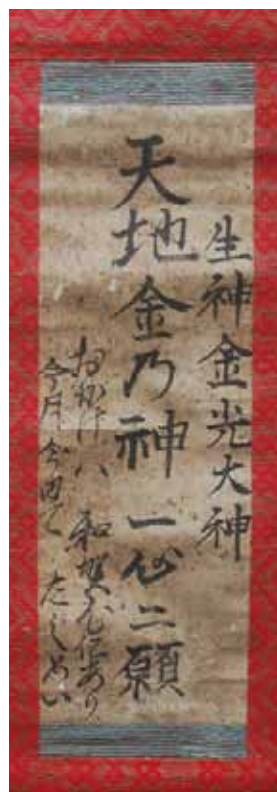 生神金光大神
天地金乃神 一心ニ願
おかげハ 和賀心にあり
今月今日で たのめい